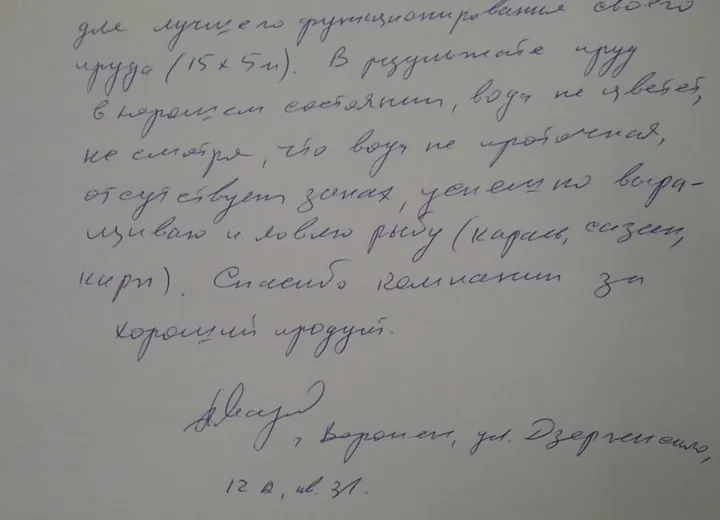 для лучшего функционирования своего
пруда (15 х 5 м). В результате пруд
в хорошем состоянии, вода не цветет,
не смотря, что вода не проточная,
отсутствует запах, успешно выра-
щиваю и ловлю рыбу (карась, сазан,
карп). Спасибо компании за
хороший продукт.
г. Воронеж, ул. Дзержинского,
12 А, кв. 31.